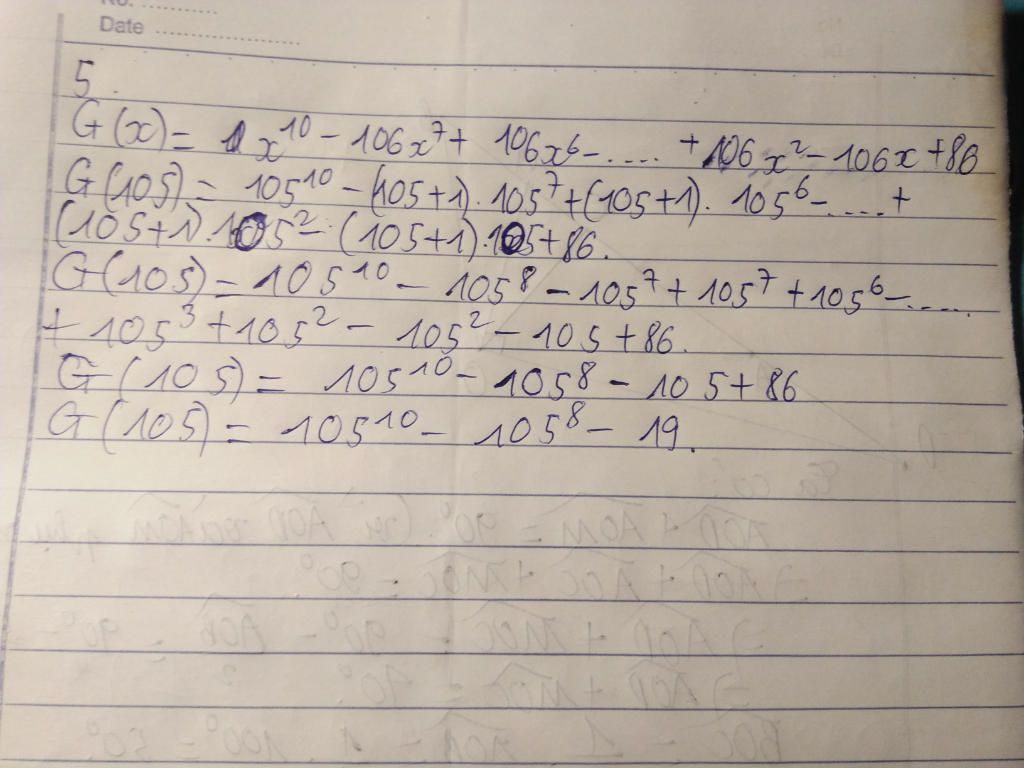 No. ............
Date ........................
5.
G(x) = 1x¹⁰ - 106x⁷ + 106x⁶ - .... + 106x² - 106x + 86
G(105) = 105¹⁰ - (105+1).105⁷ + (105+1). 105⁶ - .... +
(105+1).105² - (105+1).105 + 86.
G(105) = 105¹⁰ - 105⁸ - 105⁷ + 105⁷ + 105⁶ - .....
+ 105³ + 105² - 105² - 105 + 86.
G(105) = 105¹⁰ - 105⁸ - 105 + 86
G(105) = 105¹⁰ - 105⁸ - 19.